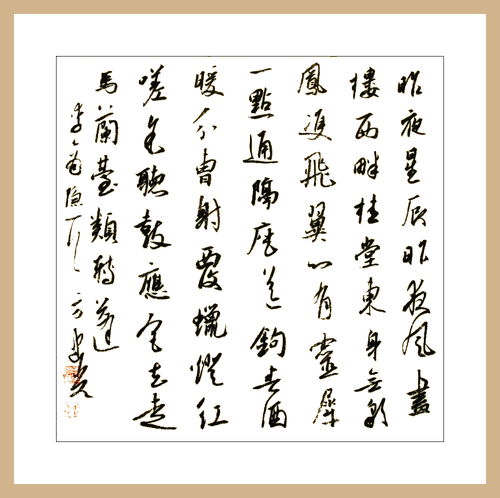 昨夜星辰昨夜風畫
樓西畔桂堂東身無彩
鳳雙飛翼心有靈犀
一點通隔座送鉤春酒
暖分曹射覆蠟燈紅
嗟余聽鼓應官去走
馬蘭臺類轉蓬
李商隱